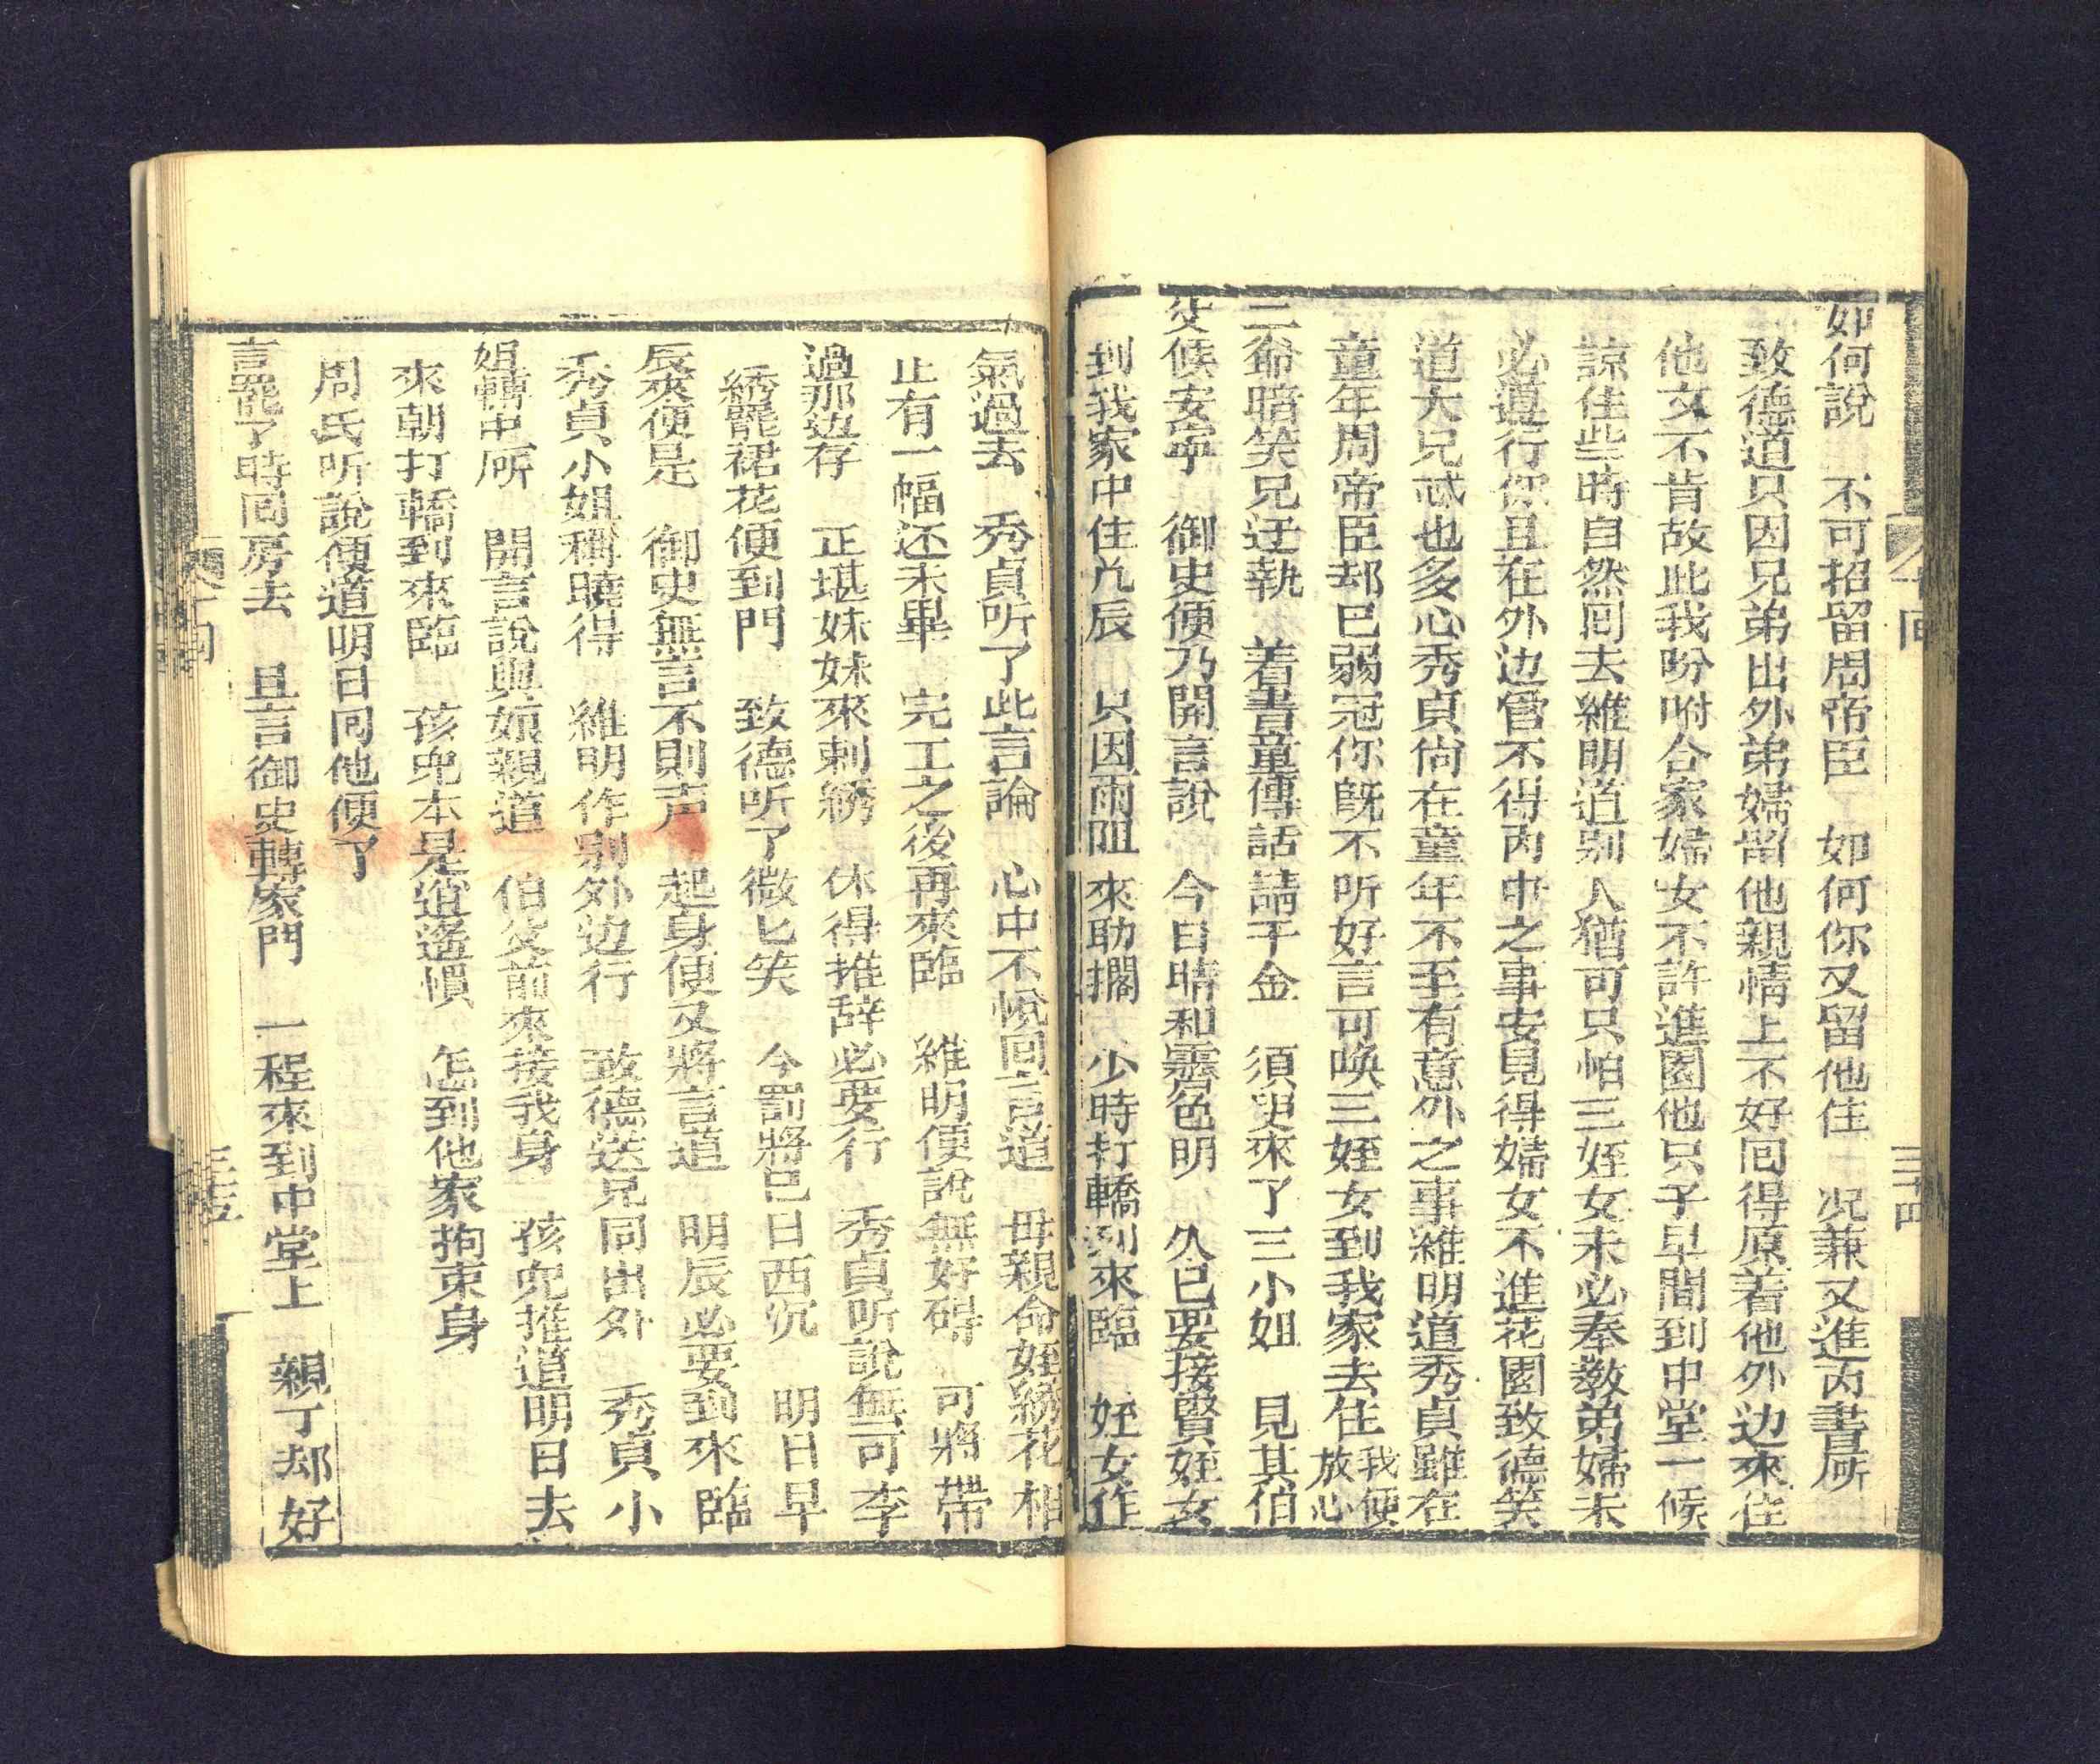 如何說　不可招留周帝臣　如何你又留他住　况兼又進内書㕔
致德道只因兄弟出外弟婦留他親情上不好囘得原着他外边來住
他文不肯故此我吩咐合家婦女不許進園他只于早間到中堂一候
諒住些時自然囘去維明道别人猶可只怕三姪女未必奉教弟婦未
必遵行你且在外边管不得内中之事安見得婦女不進花園致德笑
道大兄忒也多心秀貞尙在童年不至有意外之事維明道秀貞雖在
童年周帝臣却已弱冠你旣不听好言可唤三姪女到我家去住我便
放心
二爺暗笑兄迂執　着書童傳話請千金　須臾來了三小姐　見其伯
父候安寜　御史便乃開言說　今日晴和霽色明　久已要接賢姪女
到我家中住几辰　只因雨阻來助擱　少時打轎到來臨　姪女作
氣過去　秀貞听了此言論　心中不悅囘言道　毋親命姪綉花裙
止有一幅还未畢　完工之後再來臨　維明便說無好碍　可將帶
過那边存　正堪妹妹來刺綉　休得推辞必要行　秀貞听說無可李
綉罷裙花便到門　致德听了微匕笑　今罰將已日西沉　明日早
辰來便是　御史無言不則声　起身便又將言道　明辰必要到來臨
秀貞小姐稱曉得　維明作别外边行　致德送兄同出外　秀貞小
姐轉中㕔　開言說與娘親道　伯父前來接我身　孩兒推道明日去
來朝打轎到來臨　孩兒本是逍遙慣　怎到他家拘束身
周氏听說便道明日囘他便了
言罷了時囘房去　且言御史轉家門　一程來到中堂上　親丁却好
十回
三十四
三十五